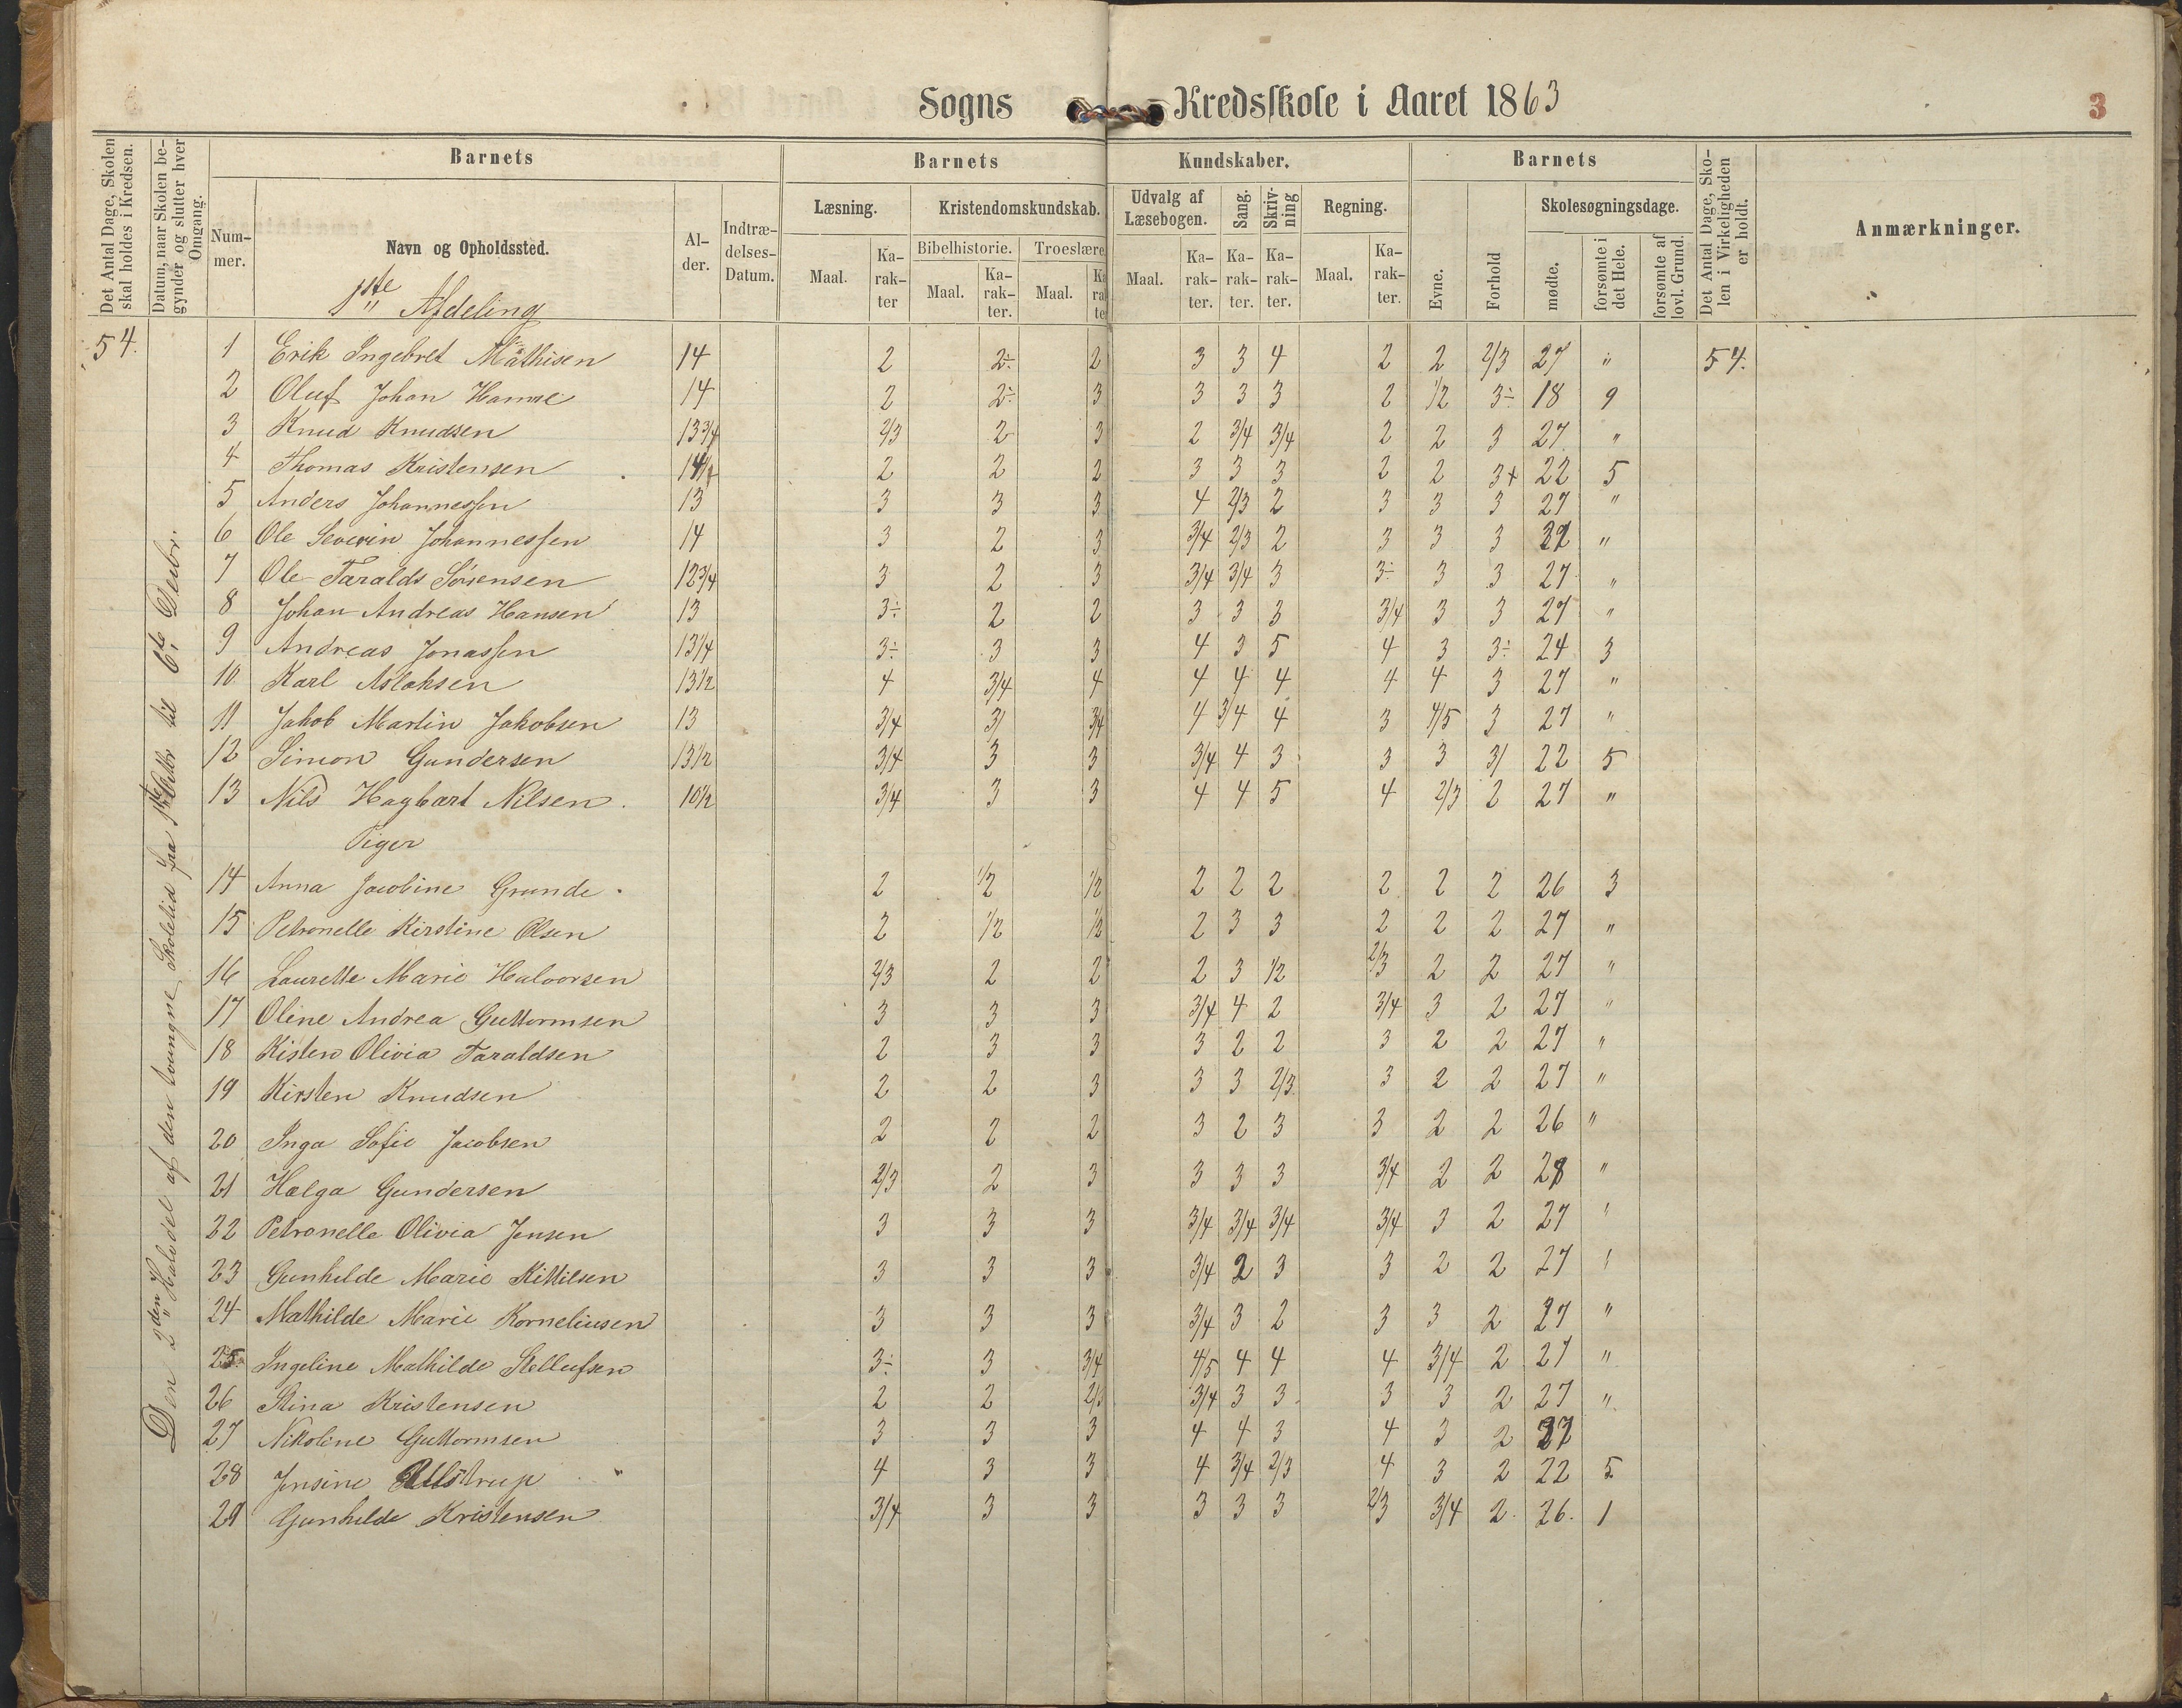 Sogns Kredsskole i Aaret 1863
3
Det Antal Dage, Skolen skal holdes i Kredsen.
Datum, naar Skolen begynder og slutter hver Omgang.
Barnets
Barnets Kundskaber.
Barnets
Det Antal Dage, Skolen i Virkeligheden er holdt.
Anmærkninger.
Nummer.
Navn og Opholdssted.
Alder.
Indtrædelses-Datum.
Læsning.
Kristendomskundskab.
Udvalg af Læsebogen.
Sang.
Skrivning
Regning.
Evne.
Forhold
Skolesøgningsdage.
Maal.
Karakter
Bibelhistorie.
Troeslære
Maal.
Karakter.
Maal.
Karakter
Maal.
Karakter.
Karakter.
Karakter.
Maal.
Karakter.
mødte.
forsømte i det Hele.
forsømte af lovl. Grund.
1ste Afdeling
54. 1 Erik Ingebret Mathisen 14 2 2÷ 2 3 3 4 2 2 2/3 27 " 54.
2 Oluf Johan Hamre 14 2 2÷ 3 3 3 3 2 1/2 3÷ 18 9
3 Knud Knudsen 13 3/4 2/3 2 3 2 3/4 3/4 2 2 3 27 "
4 Thomas Kristensen 2 2 2 3 3 3 2 2 3+ 22 5
5 Anders Johannessen 13 3 3 3 4 2/3 2 3 3 3 27 "
6 Ole Severin Johannessen 14 3 2 3 3/4 2/3 2 3 3 3 "
7 Ole Taralds Sørensen 12 3/4 3 2 3 3/4 3/4 3 3÷ 3 3 27 "
8 Johan Andreas Hansen 13 3÷ 2 2 3 3 3 3/4 3 3 27 "
9 Andreas Jonassen 13 1/4 3÷ 3 3 4 3 5 4 3 3÷ 24 3
10 Karl Aslaksen 13 1/2 4 3/4 4 4 4 4 4 4 3 27 "
11 Jakob Martin Jakobsen 13 3/4 3/ 3/4 4 3/4 4 3 4/5 3 27 "
12 Simon Gundersen 13 1/2 3/4 3 3 3/4 4 3 3 3 3/ 22 5
13 Nils Hagbart Nilsen. 10 1/2 3/4 3 3 4 4 5 4 2/3 2 27 "
Piger
14 Anna Jacobine Grunde. 2 1/2 1/2 2 2 2 2 2 2 26 3
15 Petronelle Kirstine Olsen 2 1/2 1/2 2 3 3 2 2 2 27 "
16 Laurette Marie Halvorsen 2/3 2 2 2 3 1/2 2/3 2 2 27 "
17 Oline Andrea Guttormsen 3 3 3 3/4 4 2 3/4 3 2 27 "
18 Kisten Olivia Taraldsen 2 3 3 3 2 2 3 2 2 27 "
19 Kirsten Knudsen 2 2 3 3 3 2/3 3 2 2 27 "
20 Inga Sofie Jacobsen 2 2 2 3 2 3 3 2 2 26 "
21 Hælga Gundersen 2/3 2 3 3 3 3 3/4 2 2 28 "
22 Petronelle Olivia Jensen 3 3 3 3/4 3/4 3/4 3/4 3 2 27 "
23 Gunhilde Marie Kittilsen 3 3 3 3/4 2 3 3 2 2 27 "
24 Mathilde Marie Korneliusen 3 3 3 3/4 3 2 3 3 2 27 "
25. Ingeline Mathilde Stellufsen 3÷ 3 3/4 4/5 4 4 4 3/4 2 27 "
26 Stina Kristensen 2 2 2/3 3/4 3 3 3 3 2 27 "
27 Nikoline Guttormsen 3 3 3 4 4 3 4 3 2 27
28 Jensine 4 3 3 4 3/4 2/3 4 3 2 22 5
29 Gunhilde Kristensen 3/4 3 3 3 3 3 2/3 3/4 2. 26. 1
Den 2den Halvdel af den tvungne Skoletid fra 1ste til 6te Decbr.